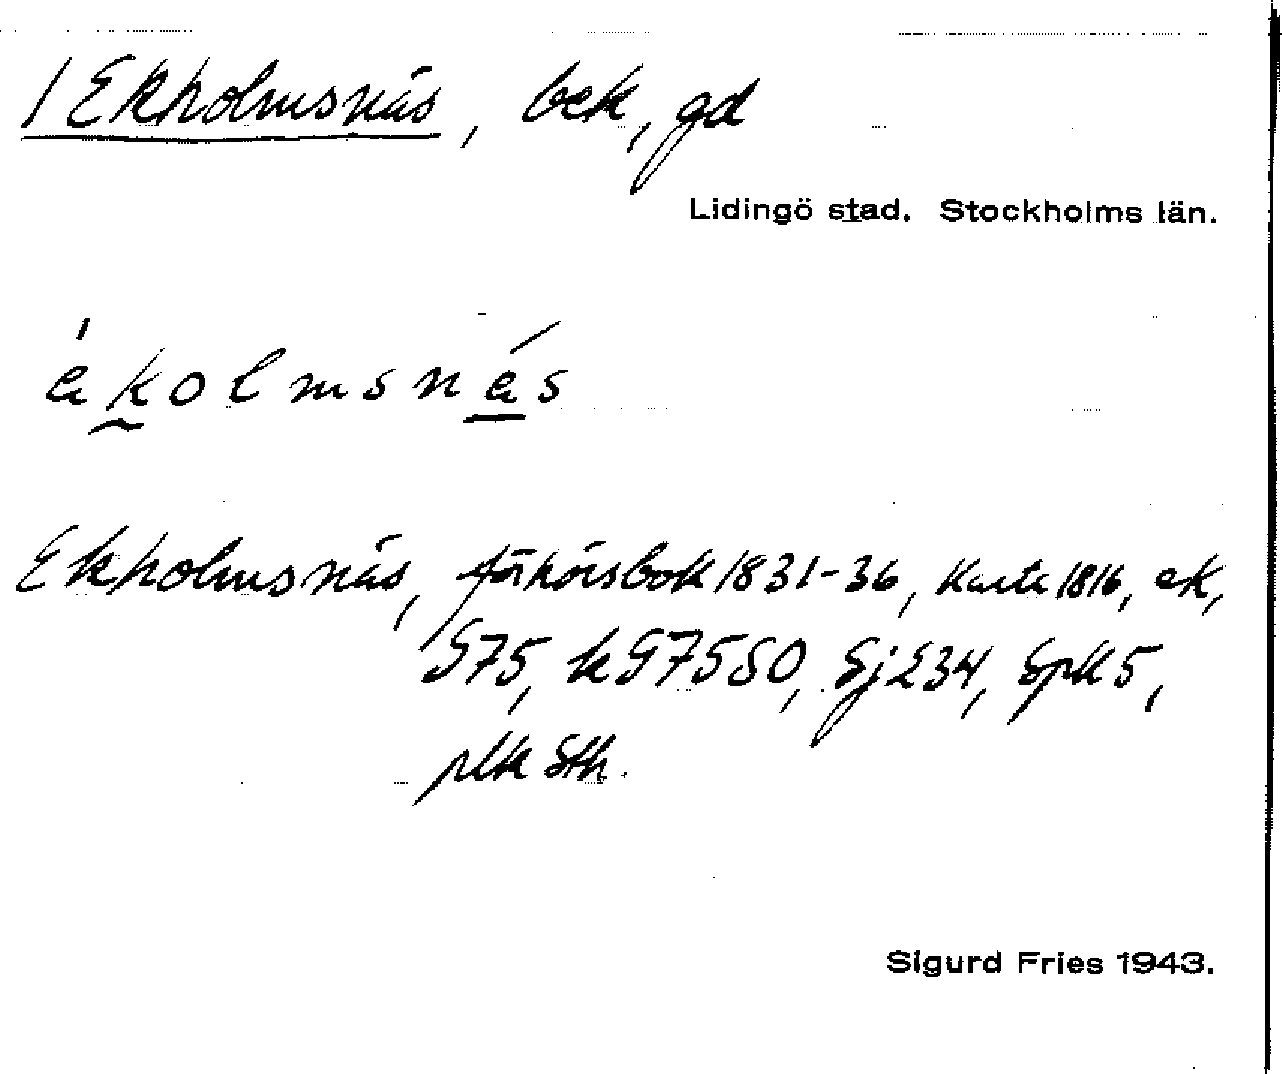 1 Ekholmsnäs, bek, gd
Lidingö stad. Stockholms län.
ékolmsnás
Ekholmsnäs, förhörsbok 1831-36, Karta 1816, ek,
G75, k G75SO, Sj 234, Spk 5,
plk Sth.
Sigurd Fries 1943.